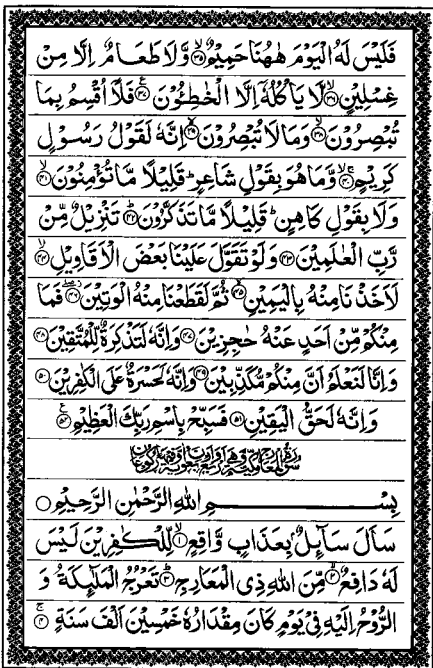 فَلَيْسَ لَهُ الْيَوْمَ هٰهُنَا حَمِيْمٌ ﴿۳۵﴾ وَّلَا طَعَامٌ اِلَّا مِنْ
غِسْلِيْنٍ ﴿۳۶﴾ لَّا يَاْكُلُهٗٓ اِلَّا الْخٰطِئُوْنَ ﴿۳۷﴾ فَلَآ اُقْسِمُ بِمَا
تُبْصِرُوْنَ ﴿۳۸﴾ وَمَا لَا تُبْصِرُوْنَ ﴿۳۹﴾ اِنَّهٗ لَقَوْلُ رَسُوْلٍ
كَرِيْمٍ ﴿۴۰﴾ وَّمَا هُوَ بِقَوْلِ شَاعِرٍ ؕ قَلِيْلًا مَّا تُؤْمِنُوْنَ ﴿۴۱﴾
وَلَا بِقَوْلِ كَاهِنٍ ؕ قَلِيْلًا مَّا تَذَكَّرُوْنَ ﴿۴۲﴾ تَنْزِيْلٌ مِّنْ
رَّبِّ الْعٰلَمِيْنَ ﴿۴۳﴾ وَلَوْ تَقَوَّلَ عَلَيْنَا بَعْضَ الْاَقَاوِيْلِ ﴿۴۴﴾
لَاَخَذْنَا مِنْهُ بِالْيَمِيْنِ ﴿۴۵﴾ ثُمَّ لَقَطَعْنَا مِنْهُ الْوَتِيْنَ ﴿۴۶﴾ فَمَا
مِنْكُمْ مِّنْ اَحَدٍ عَنْهُ حٰجِزِيْنَ ﴿۴۷﴾ وَاِنَّهٗ لَتَذْكِرَةٌ لِّلْمُتَّقِيْنَ ﴿۴۸﴾
وَاِنَّا لَنَعْلَمُ اَنَّ مِنْكُمْ مُّكَذِّبِيْنَ ﴿۴۹﴾ وَاِنَّهٗ لَحَسْرَةٌ عَلَى الْكٰفِرِيْنَ ﴿۵۰﴾
وَاِنَّهٗ لَحَقُّ الْيَقِيْنِ ﴿۵۱﴾ فَسَبِّحْ بِاسْمِ رَبِّكَ الْعَظِيْمِ ﴿۵۲﴾
بِسْمِ اللّٰهِ الرَّحْمٰنِ الرَّحِيْمِ ۝
سَاَلَ سَآئِلٌۢ بِعَذَابٍ وَّاقِعٍ ﴿۱﴾ لِّلْكٰفِرِيْنَ لَيْسَ
لَهٗ دَافِعٌ ﴿۲﴾ مِّنَ اللّٰهِ ذِی الْمَعَارِجِ ﴿۳﴾ تَعْرُجُ الْمَلٰٓئِكَةُ وَ
الرُّوْحُ اِلَيْهِ فِيْ يَوْمٍ كَانَ مِقْدَارُهٗ خَمْسِيْنَ اَلْفَ سَنَةٍ ﴿۴﴾